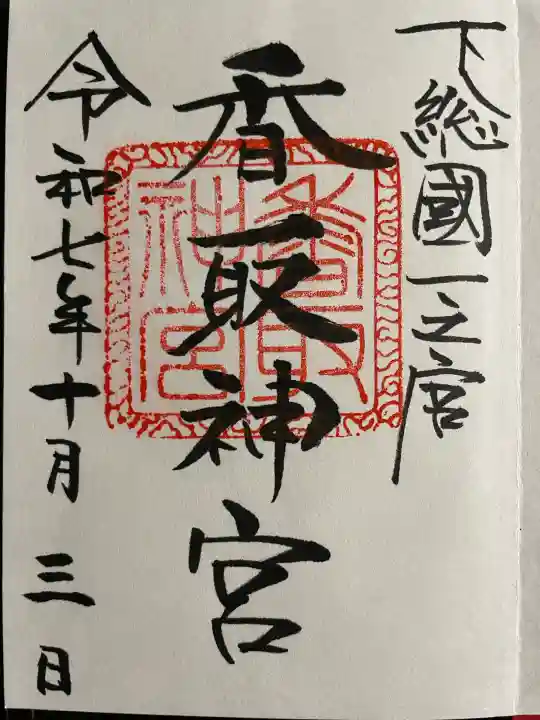 下総國一之宮
香取神宮
令和七年十月三日
香取神宮